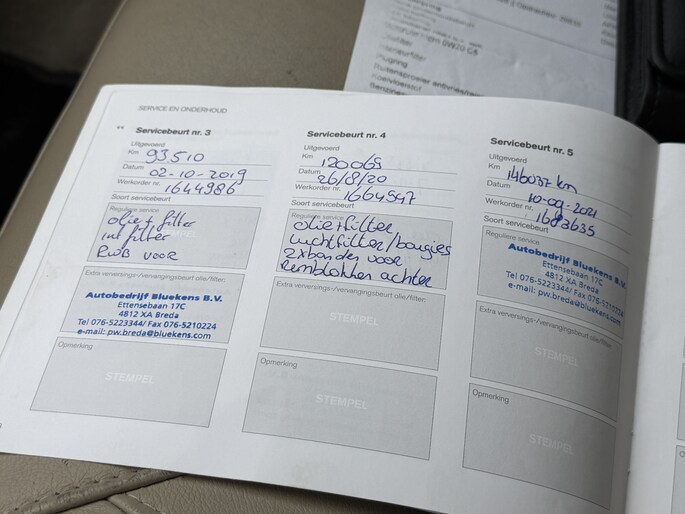 0W20 C5
SERVICE EN ONDERHOUD
Servicebeurt nr. 3
Uitgevoerd
Km 93510
Datum 02-10-2019
Werkorder nr. 1644986
Soort servicebeurt
Reguliere service
olie + filter
int filter
RWB VOOR
Extra verversings-/vervangingsbeurt olie/filter:
Autobedrijf Bluekens B.V.
Ettensebaan 17C
4812 XA Breda
Tel 076-5223344/ Fax 076-5210224
e-mail: pw.breda@bluekens.com
Opmerking
STEMPEL
Servicebeurt nr. 4
Uitgevoerd
Km 120065
Datum 26/8/20
Werkorder nr. 1664547
Soort servicebeurt
Reguliere service
olie+filter
luchtfilter/bougies
2xbanden voor
Remblokken achter
Extra verversings-/vervangingsbeurt olie/filter:
STEMPEL
Opmerking
STEMPEL
Servicebeurt nr. 5
Uitgevoerd
Km 146037 km
Datum 10-09-2021
Werkorder nr. 1683635
Soort servicebeurt
Reguliere service
Autobedrijf Bluekens B.V.
Ettensebaan 17C
4812 XA Breda
Tel 076-5223344/ Fax 076-5210224
e-mail: pw.breda@bluekens.com
Extra verversings-/vervangingsbeurt olie/filter:
STEMPEL
Opmerking
STEMPEL